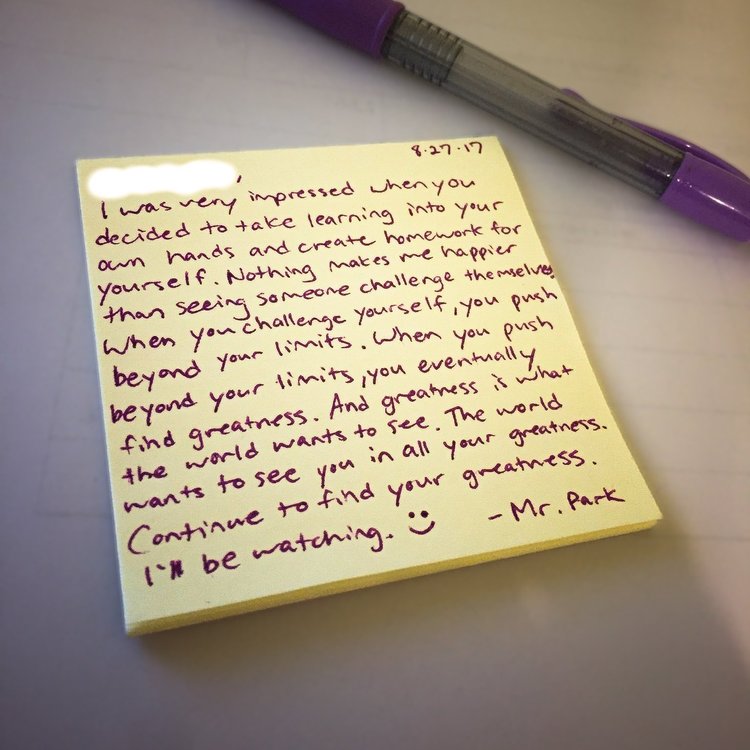 8.27.17
,
I was very impressed when you
decided to take learning into your
own hands and create homework for
yourself. Nothing makes me happier
than seeing someone challenge themselves.
When you challenge yourself, you push
beyond your limits. When you push
beyond your limits, you eventually
find greatness. And greatness is what
the world wants to see. The world
wants to see you in all your greatness.
Continue to find your greatness.
I'll be watching. :) - Mr. Park